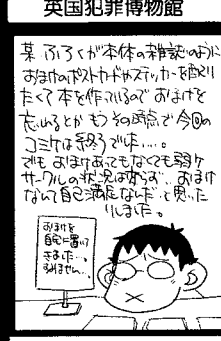 英国犯罪博物館
某ふろくが本体の雑誌のように
おまけのポストカードやステッカーを配り
たくて本を作っているのでおまけを
忘れるとか もうその時点で今回の
コミケは終了でした…。
でも おまけあってもなくても弱小
サークルの状況は変らず、おまけ
なんて自己満足なんだと思った
りしました。
おまけを
自宅に置いて
きました…。
すみません…